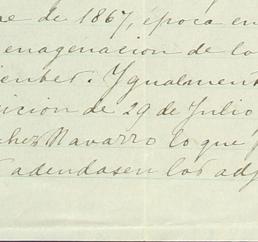 de 1867, época en
enagenacion de lo
Ygualment
icion de 29 de Julio
chez Navarro lo que
adendasen los adj